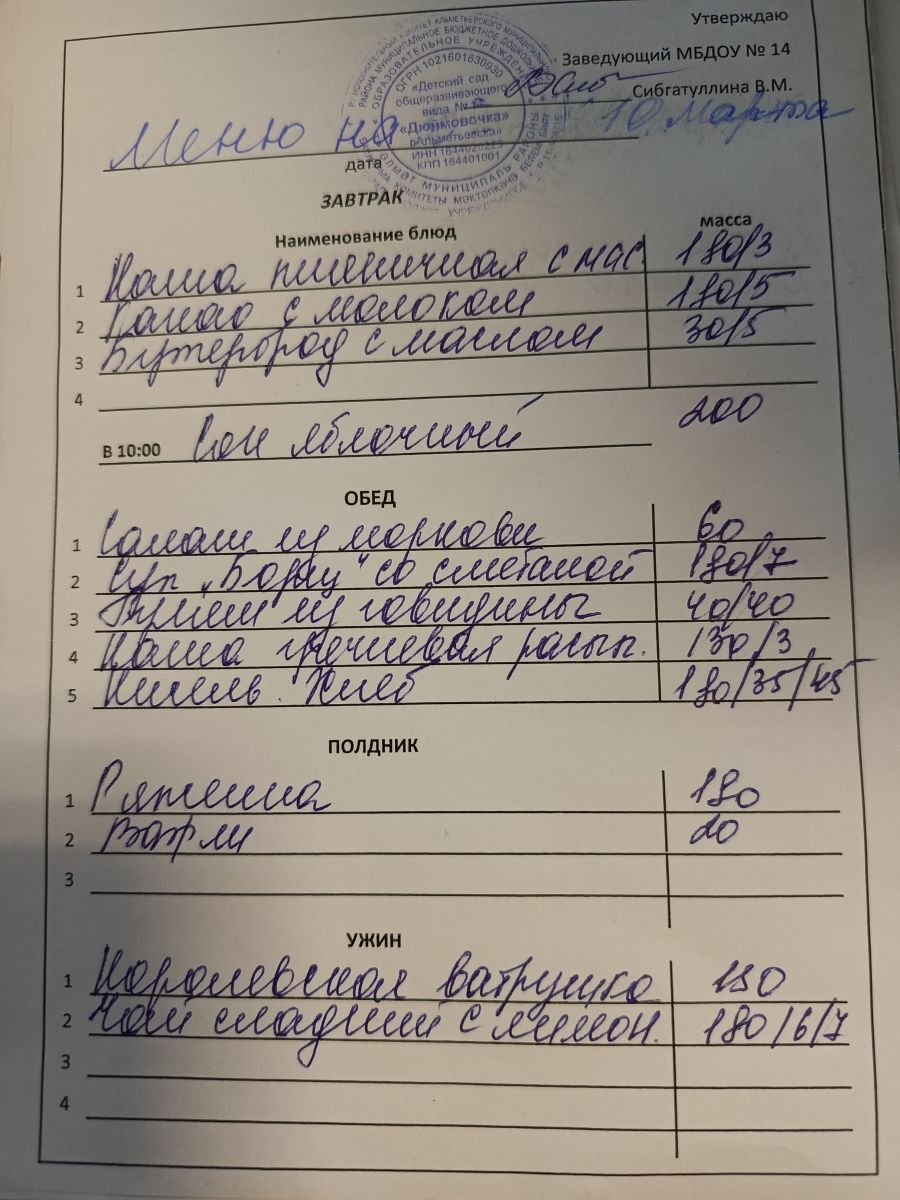 Утверждаю
Заведующий МБДОУ № 14
Сибгатуллина В.М.
ОГРН 1021601630930
«Детский сад
общеразвивающего
вида №
«Дюймовочка»
г.Альметьевска»
ИНН
КПП 164401001
Меню на 10 Марта
дата
ЗАВТРАК
Наименование блюд масса
1 Каша пшеничная с мас 180/3
2 Какао с молоком 180/5
3 Бутерброд с маслом 30/5
4
В 10:00 Сок яблочный 200
ОБЕД
1 Салат из моркови 60
2 Суп „Борщ" со сметаной 180/7
3 Гуляш из говядины 40/40
4 Каша гречневая рассып. 130/3
5 Кисель. Хлеб 180/35/45
ПОЛДНИК
1 Ряженка 180
2 Вафли 20
3
УЖИН
1 Королевская ватрушка 180
2 Чай сладкий с лимон. 180/6/7
3
4